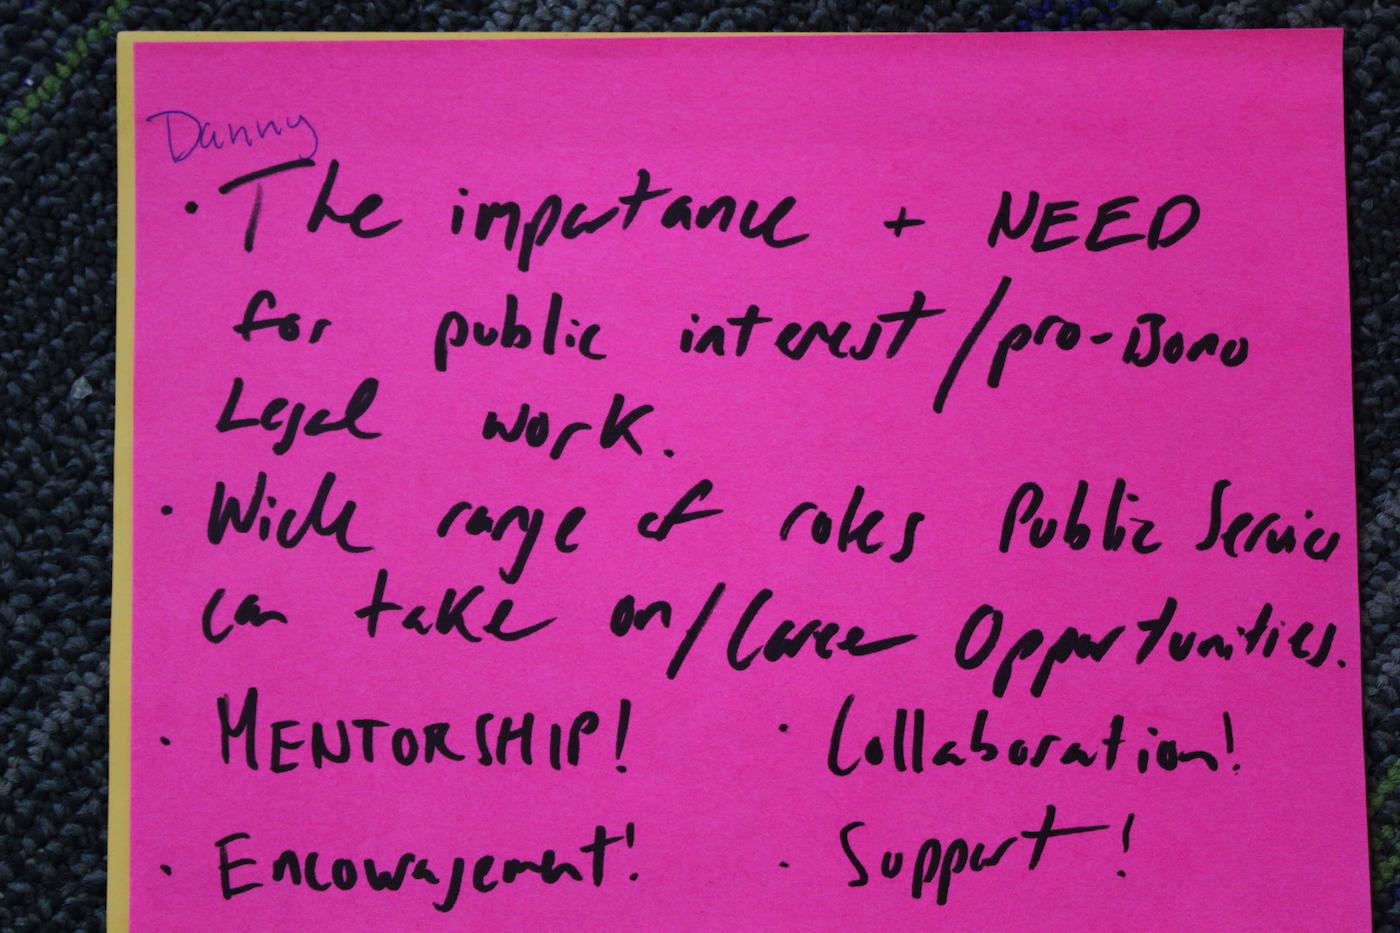 Danny
· The importance + NEED
for public interest/pro-Bono
Legal work.
· Wide range of roles Public Service
can take on/Career Opportunities.
· MENTORSHIP! · Collaboration!
· Encouragement! · Support!